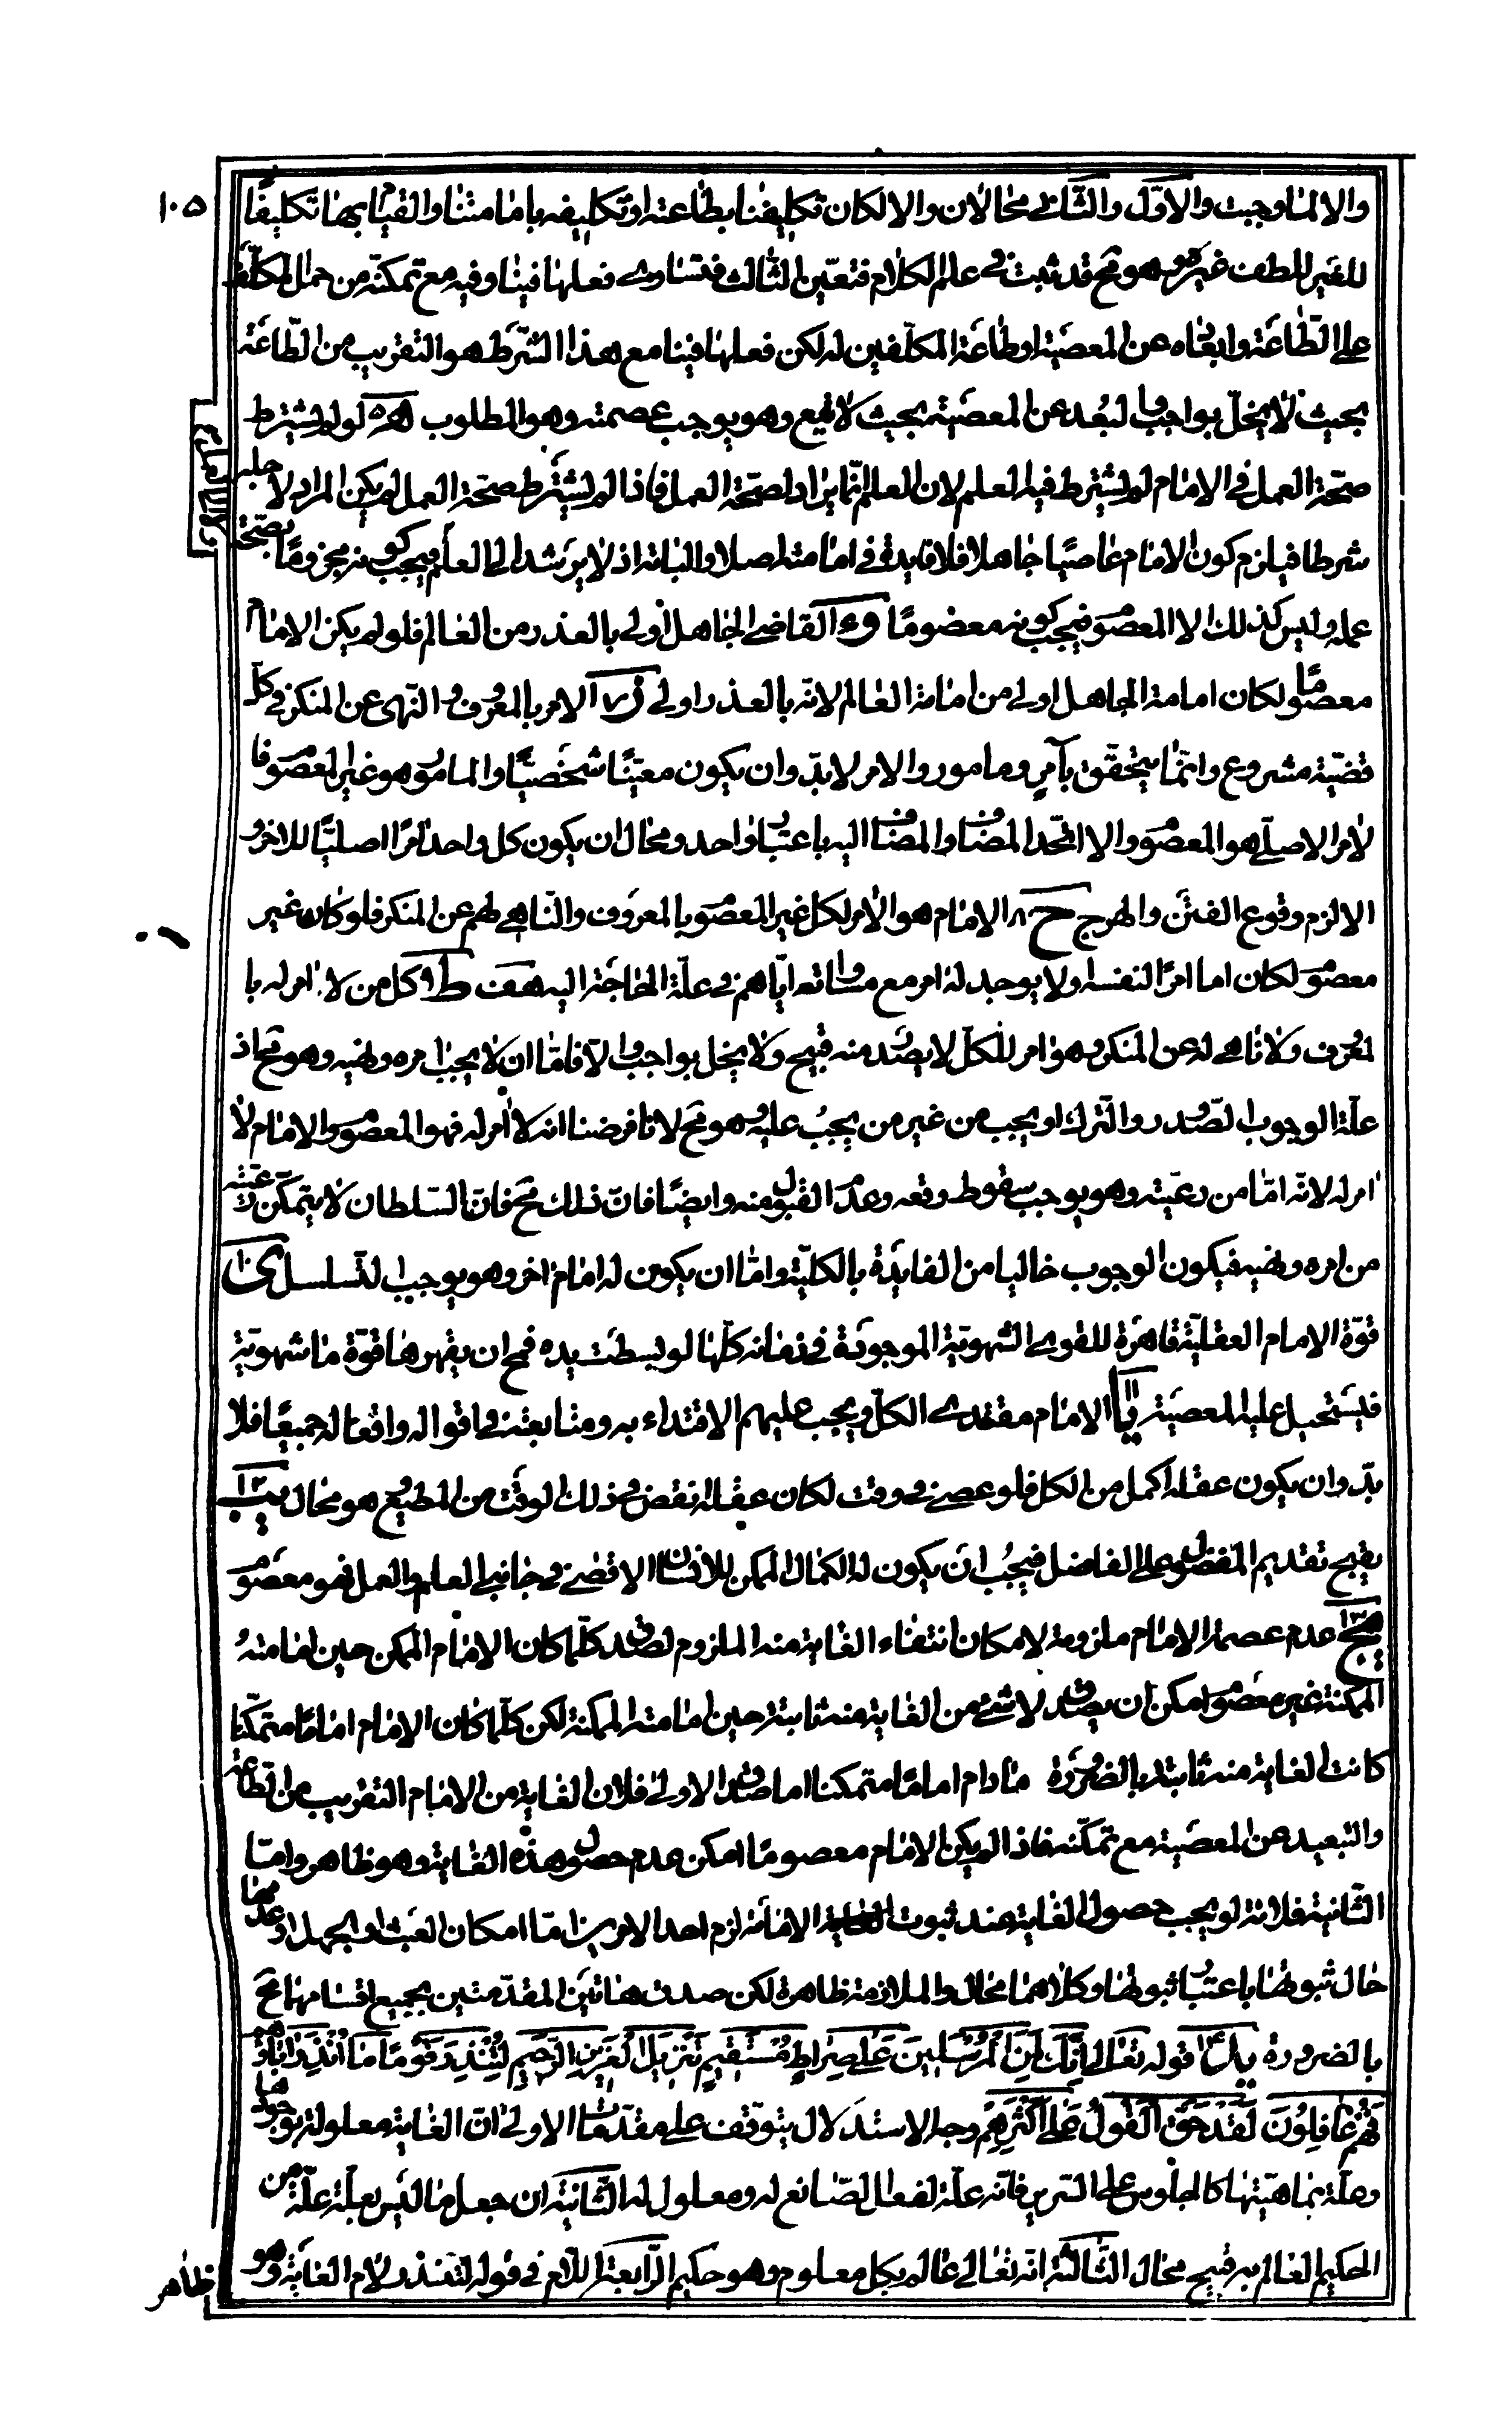 ١٠٥
والا لما وجبت والاوّل والثاني محالان والا لكان تكليفنا بطاعته او تكليفه بامامتنا والقيام بها تكليفًا
للغير للطف غيره وهو مح قد ثبت في علم الكلام فتعيّن الثالث فتساوى فعلها فينا وفيه مع تمكنه من حمل المكلّف
على الطاعة وابعاه عن المعصية وطاعة المكلّفين له لكن فعلها فينا مع هذا الشرط هو التقريب من الطّاعة
بحيث لا يخلّ بواجب والبُعد عن المعصية بحيث لا تقع وهو يوجب عصمته وهو المطلوب ه ٥ لو لم يشترط
صحّة العمل في الامام لم يشترط فيه العلم لان العلم انّما يراد لصحّة العمل فاذا لم يشترط صحّة العمل لم يكن المراد لاجله
شرطا فيلزم كون الامام عاصيًا جاهلا فلا فايدة في امامته اصلا والبتة اذ لا يرشد الى العلم فيجب كونه مجزومًا بصحّة
عمله وليس كذلك الا المعصوم فيجب كونه معصومًا و ٦ القاضي الجاهل أولى بالعذر من العالم فلو لم يكن الامام
معصومًا لكان امامة الجاهل اولى من امامة العالم لانّه بالعذر اولى ز ٧ الامر بالمعروف والنّهى عن المنكر في كلّ
قضيّة مشروع وانمّا يتحقق بآمرٍ ومامور والامر لا بدّ وان يكون معيّنًا شخصيًّا والمامور هو غير المعصوم فا
لامر الاصلي هو المعصوم والا اتّحد المضاف والمضاف اليه باعتبار واحد ومحال ان يكون كل واحد امرًا اصليًّا للاخر و
الا لزم وقوع الفتن والهرج ح ٨ الامام هو الامر لكل غير المعصوم بالمعروف والناهي لهم عن المنكر فلو كان غير
معصوم لكان اما امرًا لنفسه ولا يوجد له امر مع مساواته ايّاهم في علّة الحاجة اليه هف ط ٩ كل من لا امر له با
لمعرف ولا ناهى له عن المنكر وهو امر للكلّ لا يصدر منه قبيح ولا يخل بواجب والّا فامّا ان لا يجب امره ونهيه وهو مح اذ
علّة الوجوب الصّدور والترك او يجب من غير من يجبُ عليه وهو مح لانا فرضنا انه لا امر له فهو المعصوم والامام لا
امر له لانّه امّا من رعيّته وهو يوجب سقوط وقعه وعدم القبول منه وايضًا فان ذلك مح فان السّلطان لا يتمكّن رعيّته
من امره ونهيه فيكون الوجوب خاليا من الفايدة بالكليّة وامّا ان يكون له امام اخر وهو يوجب التسلسل ى ١٠
قوّة الامام العقليّة قاهرة للقوى الشهويّة الموجودة في زمانه كلّها لو بسطت يده فمح ان يقهرها قوّة ما شهويّة
فيستحيل عليه المعصية يا ١١ الامام مقتدى الكلّ ويجب عليهم الاقتداء به ومتابعته في اقواله وافعاله جميعًا فلا
بدّ وان يكون عقله اكمل من الكل فلو عصى في وقت لكان عقله انقض في ذلك الوقت من المطيع وهو محال يب ١٢
يقبح تقديم المفضول على الفاضل فيجب ان يكون له الكمال الممكن للانسان الاقصى في جانبي العلم والعمل فهو معصوم
يج ١٣ عدم عصمة الامام ملزومة لامكان انتفاء الغاية منه الملزوم لصدق كلّما كان الامام الممكن حين امامتهُ
الممكنة غير معصوم امكن ان يصدق لا شئ من الغاية منه ثابتة حين امامته الممكنة لكن كلّما كان الامام امامًا متمكّنا
كانت الغاية منه ثابتة بالضرورة ما دام امامًا متمكنا اما صدق الاولى فلان الغاية من الامام التقريب من الطّاعة
والتبعيد عن المعصية مع تمكّنه فاذا لم يكن الامام معصومًا امكن عدم حصول هذه الغاية وهو ظاهر وامّا
الثّانية فلانه لو لم يجب حصول الغاية عند ثبوت الامامة لزم احد الامرين امّا امكان العبث او الجهل او عدمها
حال ثبوتها باعتبار ثبوتها وكلاهما محال والملازمة ظاهرة لكن صدق هاتين المقدّمتين بجميع اقسامها مح
بالضرورة يد ١٤ قوله تعالى اِنَّكَ لَمِنَ الْمُرْسَلِينَ عَلى صِراطٍ مُسْتَقيمٍ تَنْزيلَ الْعَزيزِ الرَّحيمِ لِتُنْذِرَ قَوْمًا ما اُنْذِرَ اباؤُهُم
فَهُمْ غافِلُونَ لَقَدْ حَقَّ الْقَوْلُ عَلى اَكْثَرِهِمْ وجه الاستدلال يتوقف على مقدّمات الاولى ان الغاية معلولة بوجودها
وعلّة بماهيّتها كالجلوس على السّرير فانّه علّة لفعل الصّانع له ومعلول له الثّانية ان جعل ما ليس بعلّة علّة من
الحكيم العالم به قبيح محال الثّالثة انّه تعالى عالم بكل معلوم وهو حكيم الرّابعة اللّام في قوله لتنذر لام الغاية وهو
ظاهر